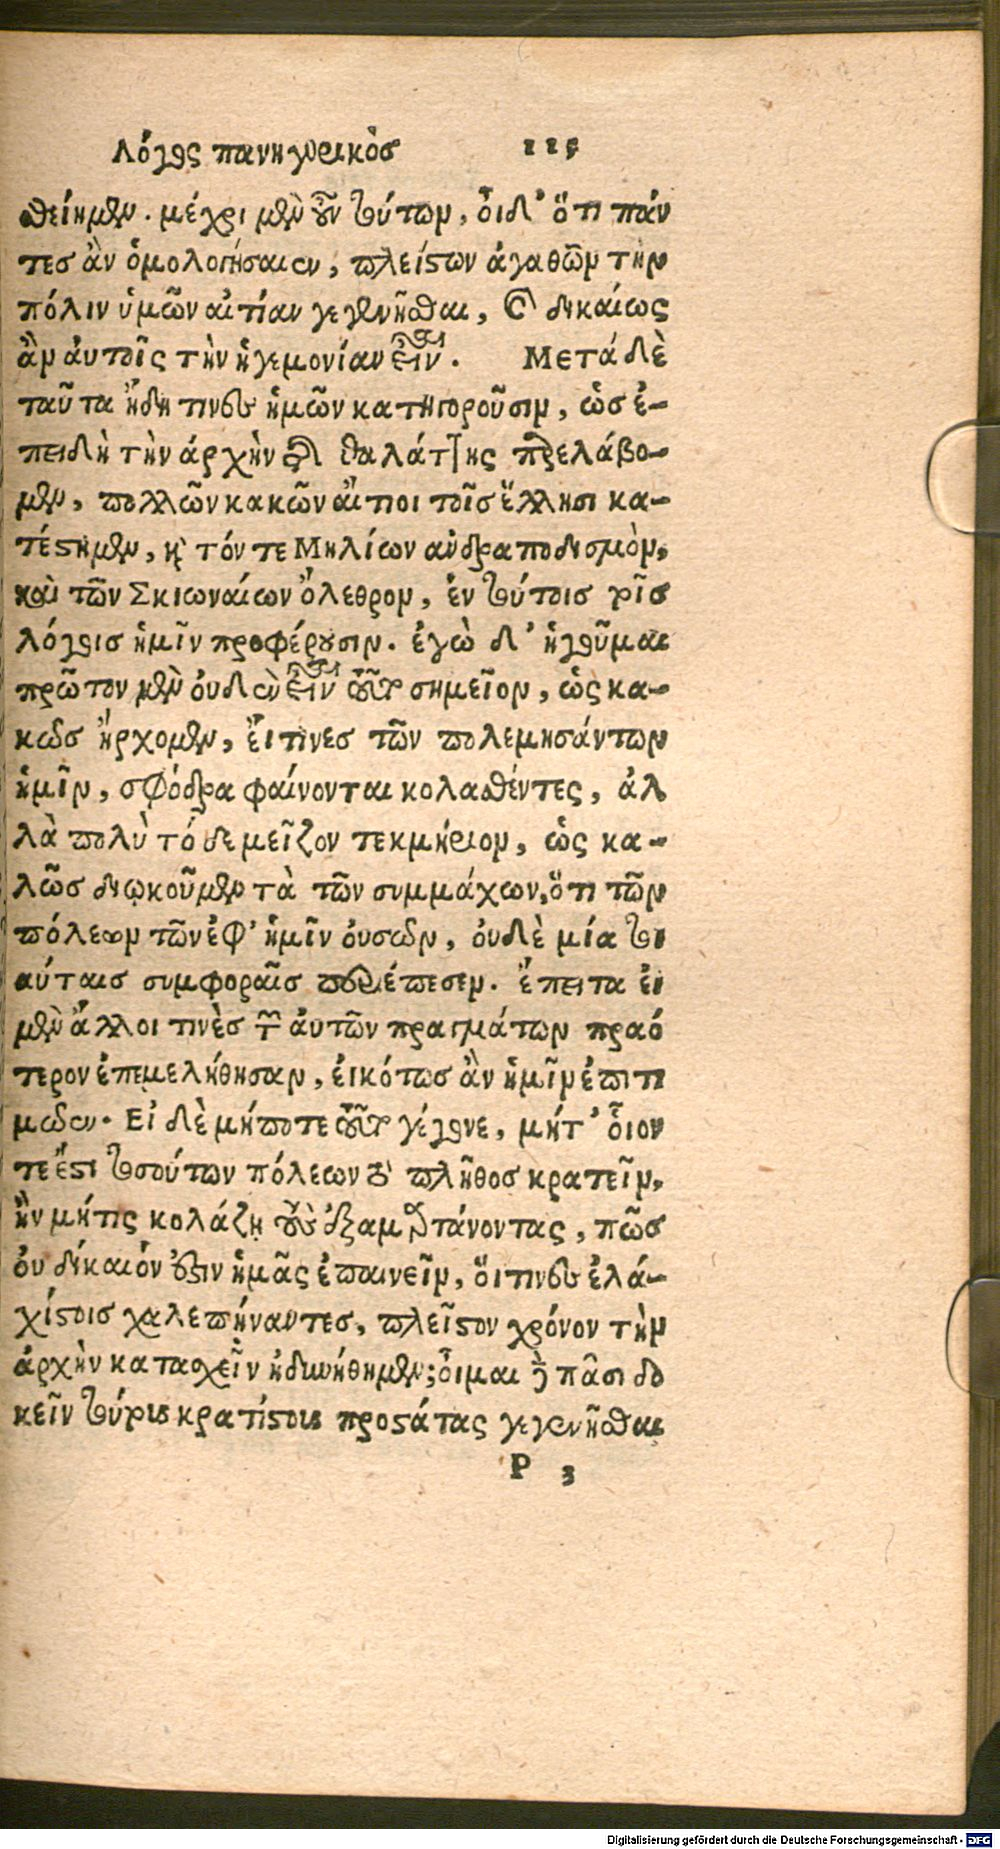 Λόγος πανηγυρικὸσ 115
θείημεν. μέχρι μὲν οὖν τούτων, οἶδ' ὅτι πάν
τεσ ἂν ὁμολογήσαιεν, πλείστων ἀγαθῶν τὴν
πόλιν ὑμῶν αἰτίαν γεγενῆσθαι, καὶ δικαίως
ἂν ἀυτοῖς τὴν ἡγεμονίαν εἶναι. Μετά δὲ
ταῦτα ἤδη τινες ἡμῶν κατηγοροῦσιν, ὡσ ἐ-
πειδὴ τὴν ἀρχὴν τῆς θαλάττης παρελάβο-
μεν, πολλῶν κακῶν αἴτιοι τοῖσ ἕλλησι κα-
τέστημεν, καὶ τόν τε Μηλίων ανδραποδισμὸν,
καὶ τῶν Σκιωναίων ὄλεθρον, ἐν τούτοισ τοῖσ
λόγοισ ἡμῖν προφέρουσιν. ἐγὼ δ' ἡγοῦμαι
πρῶτον μὲν ὀυδὲν εἶναι τοῦτο σημεῖον, ὡς κα-
κῶσ ἤρχομεν, ἔιτινεσ τῶν πολεμησάντων
ἡμῖν, σφόδρα φαίνονται κολασθέντες, ἀλ
λὰ πολὺ τό δε μεῖζον τεκμήριον, ὡς κα-
λῶσ διῳκοῦμεν τὰ τῶν συμμάχων, ὅτι τῶν
πόλεων τῶν ἐφ' ἡμῖν ὀυσῶν, ὀυδὲ μία ται
αύταισ συμφοραῖσ περιέπεσεν. ἔπειτα ἐι
μὲν ἄλλοι τινὲσ τῶν ἀυτῶν πραγμάτων πραό
τερον ἐπεμελήθησαν, ἐικότωσ ἂν ἡμῖν ἐπιτι
μῶεν. Εἰ δὲ μήποτε τοῦτο γέγονε, μήτ' οἷον
τε ἔστι τοσούτων πόλεων τὸ πλῆθοσ κρατεῖν,
ἢν μήτις κολάζῃ τοὺς ἐξαμαρτάνοντας, πῶσ
ὀυ δίκαιόν ἐστιν ἡμᾶς ἐπαινεῖν, ὅιτινες ἐλά-
χίστοισ χαλεπήναντεσ, πλεῖστον χρόνον τὴν
ἀρχὴν κατασχεῖν ἠδυνήθημεν; οἶμαι δὲ πᾶσι δο
κεῖν τούτους κρατίστους προστάτας γεγενῆσθαι
P 3
Digitalisierung gefördert durch die Deutsche Forschungsgemeinschaft - DFG